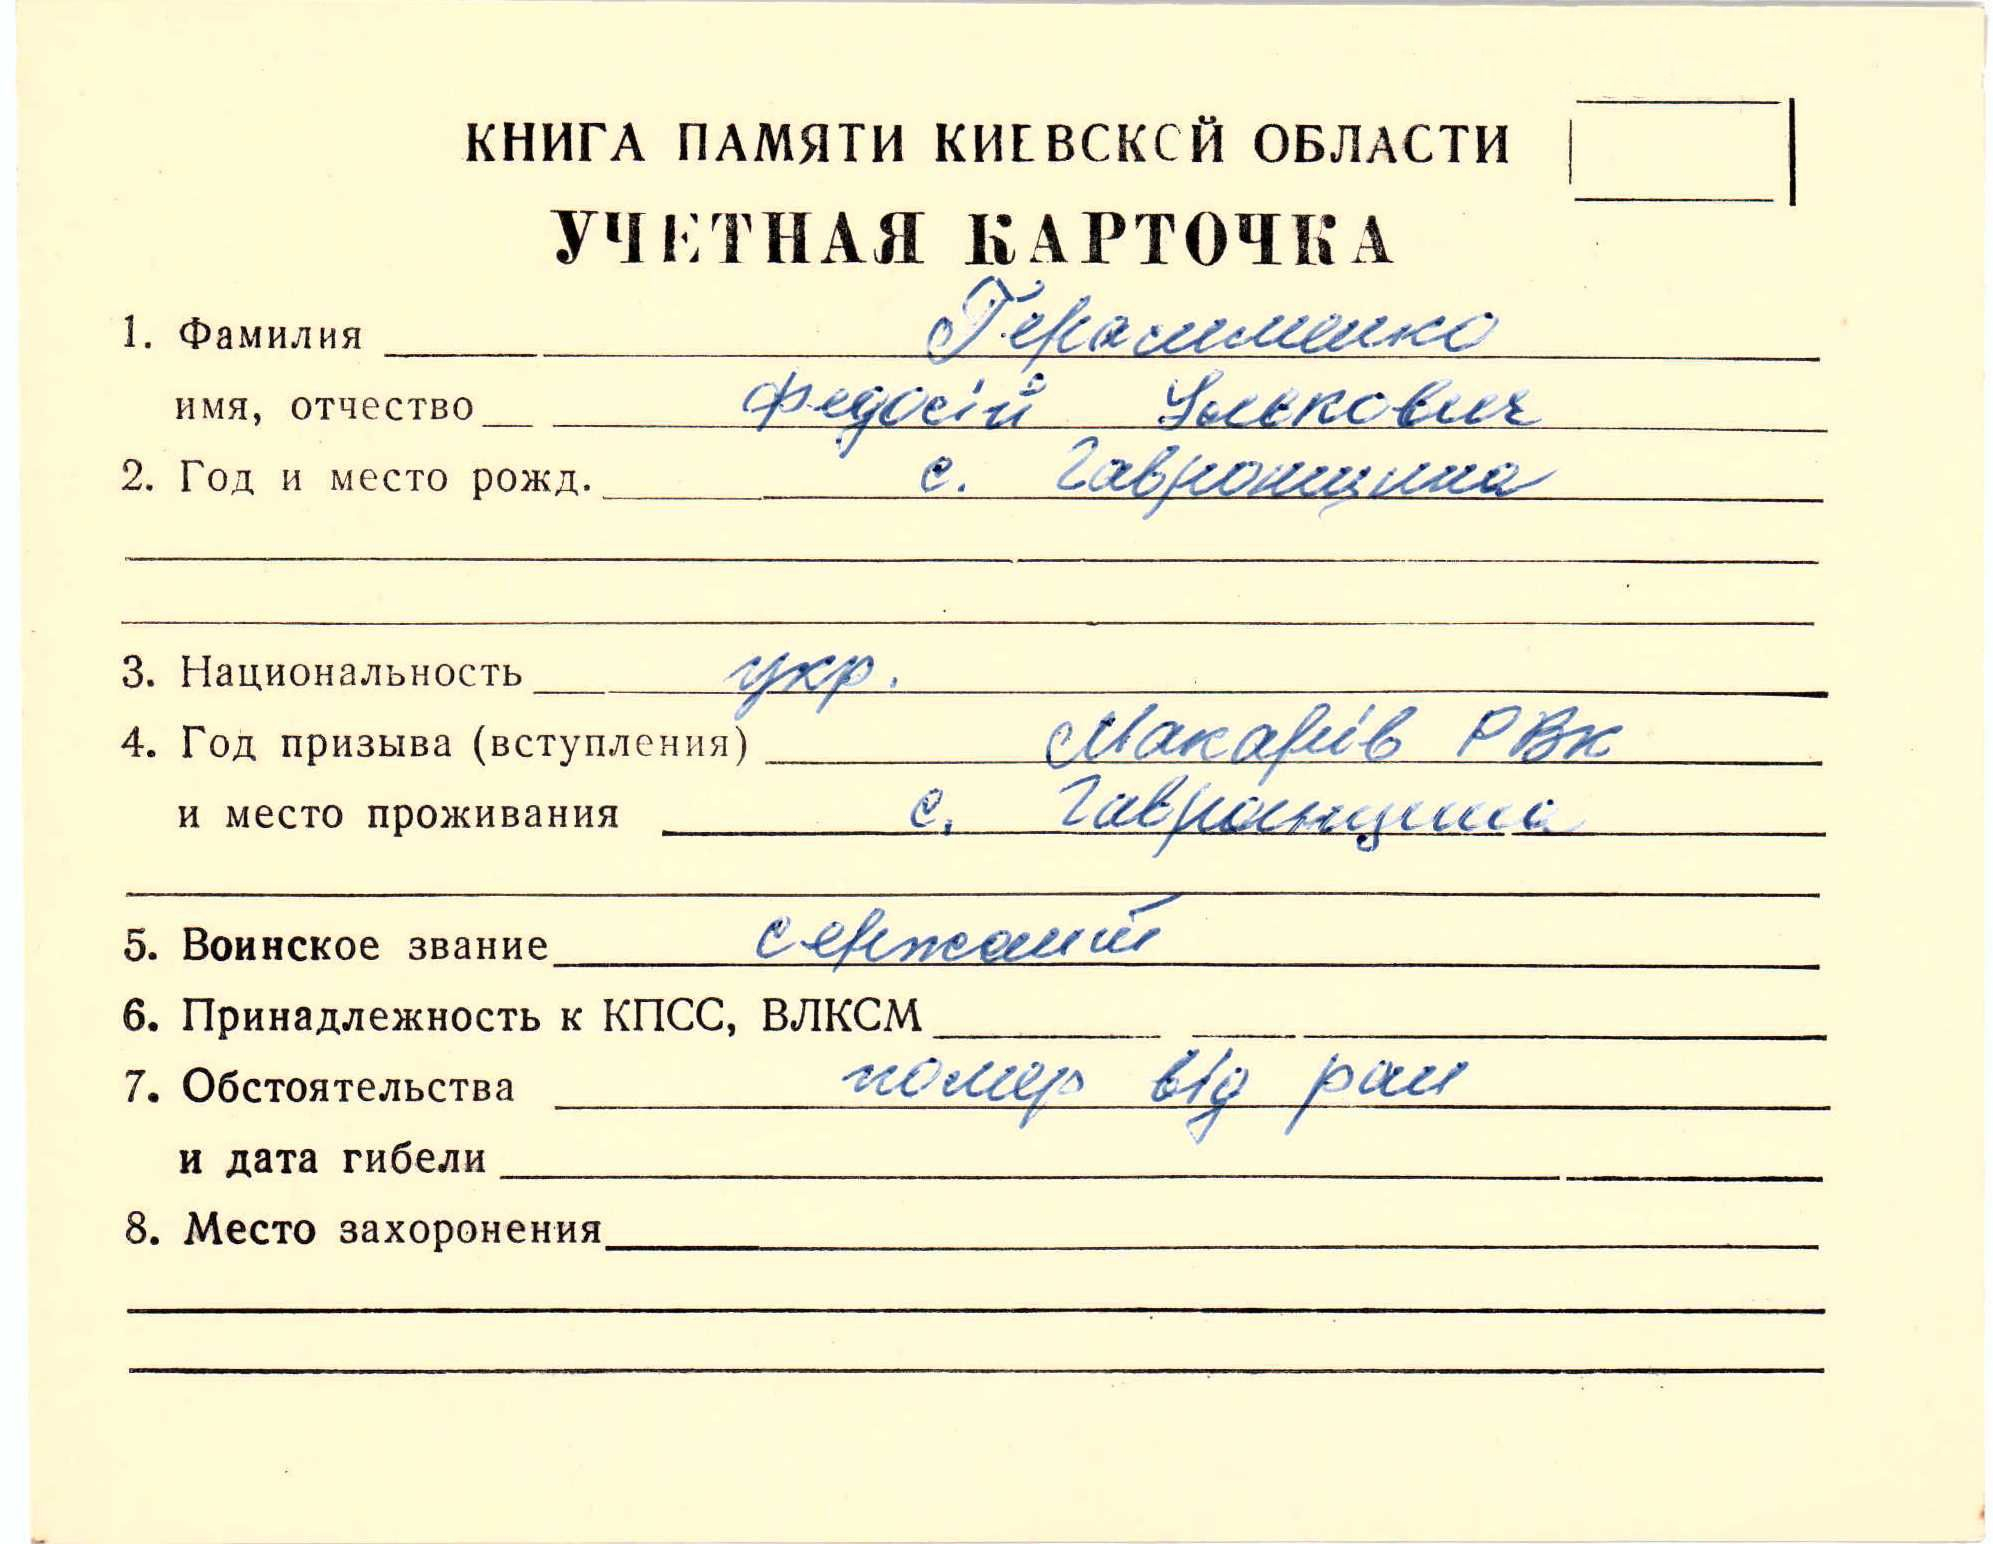 КНИГА ПАМЯТИ КИЕВСКОЙ ОБЛАСТИ
УЧЕТНАЯ КАРТОЧКА
1. Фамилия Герасименко
имя, отчество Федосій Улькович
2. Год и место рожд. с. Гавронщина
3. Национальность укр.
4. Год призыва (вступления) Макарів РВК
и место проживания с. Гавронщина
5. Воинское звание сержант
6. Принадлежность к КПСС, ВЛКСМ
7. Обстоятельства помер від ран
и дата гибели
8. Место захоронения